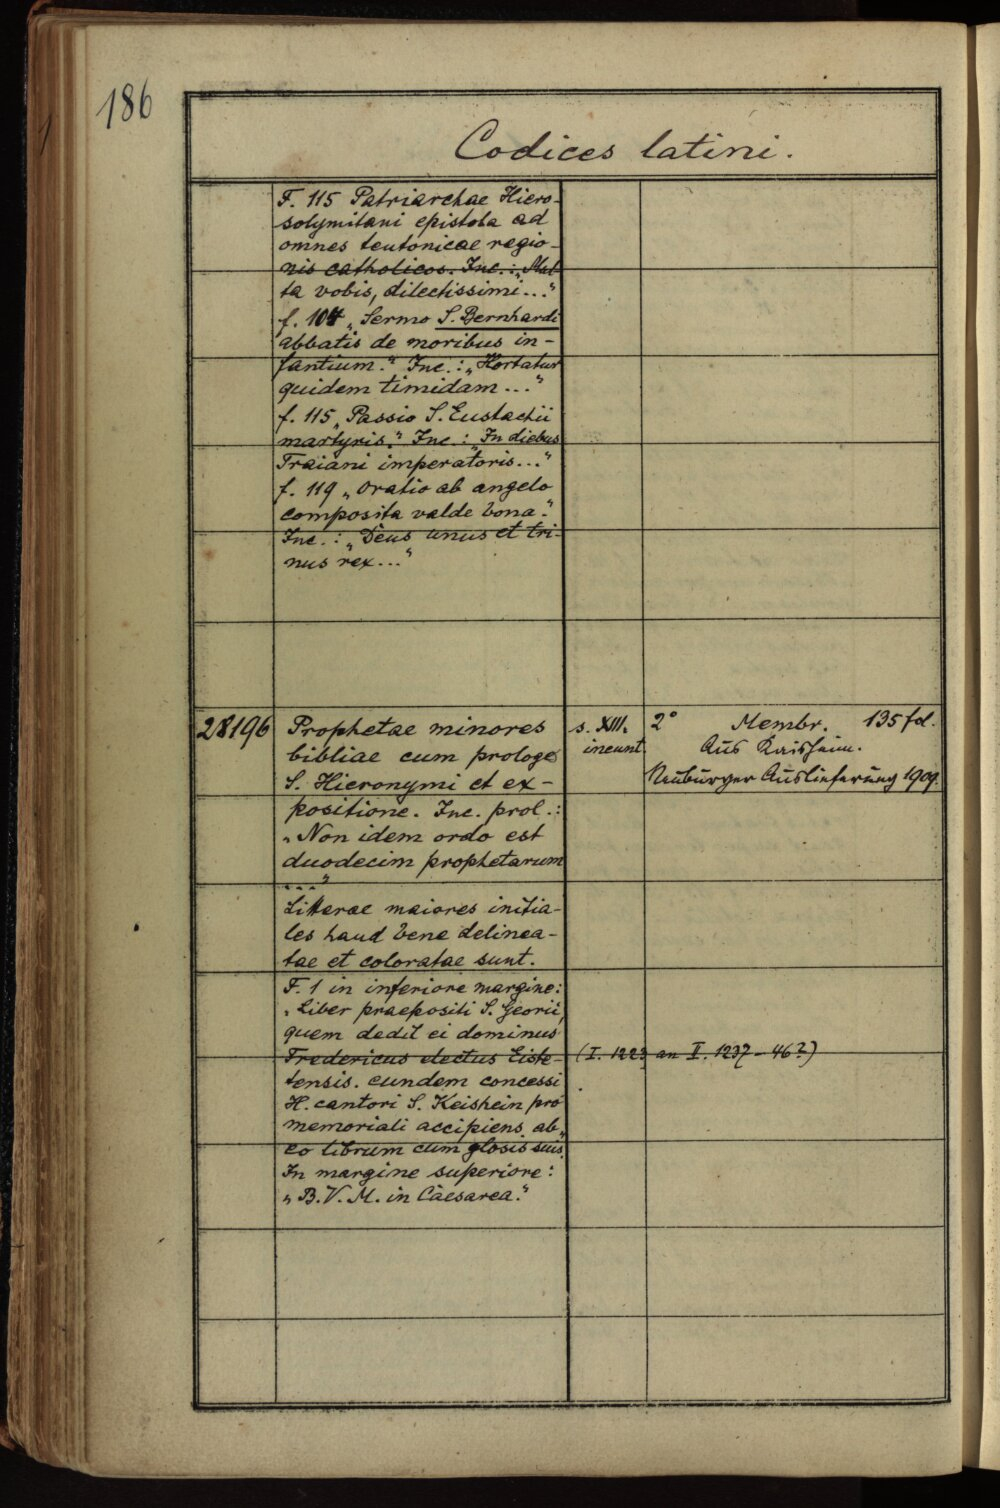 186
Codices latini.
F. 115 Patriarchae Hiero-
solymitani epistola ad
omnes teutonicae regio-
nis catholicos. Inc.: „Mul-
ta vobis, dilectissimi..."
f. 104 „Sermo S. Bernhardi
abbatis de moribus in-
fantium." Inc.: „Hortatur
quidem timidam..."
f. 115 „Passio S. Eustachii
martyris." Inc.: „In diebus
Traiani imperatoris..."
f. 119 „Oratio ab angelo
composita valde bona."
Inc.: „Deus unus et tri-
nus rex..."
28196
Prophetae minores
bibliae cum prologo
S. Hieronymi et ex-
positione. Inc. prol.:
„Non idem ordo est
duodecim prophetarum
..."
Litterae maiores initia-
les haud bene delinea-
tae et coloratae sunt.
F. 1 in inferiore margine:
„Liber praepositi S. Georii,
quem dedit ei dominus
Fredericus electus Eiste-
tensis. eundem concessi
H. cantori S. Keishein pro
memoriali accipiens ab
eo librum cum glosis suis."
In margine superiore:
„B. V. M. in Caesarea."
s. XIII.
ineunt.
2° Membr. 135 fol.
Aus Kaisheim.
Neuburger Auslieferung 1909.
(I. 1223 an II. 1237–46?)